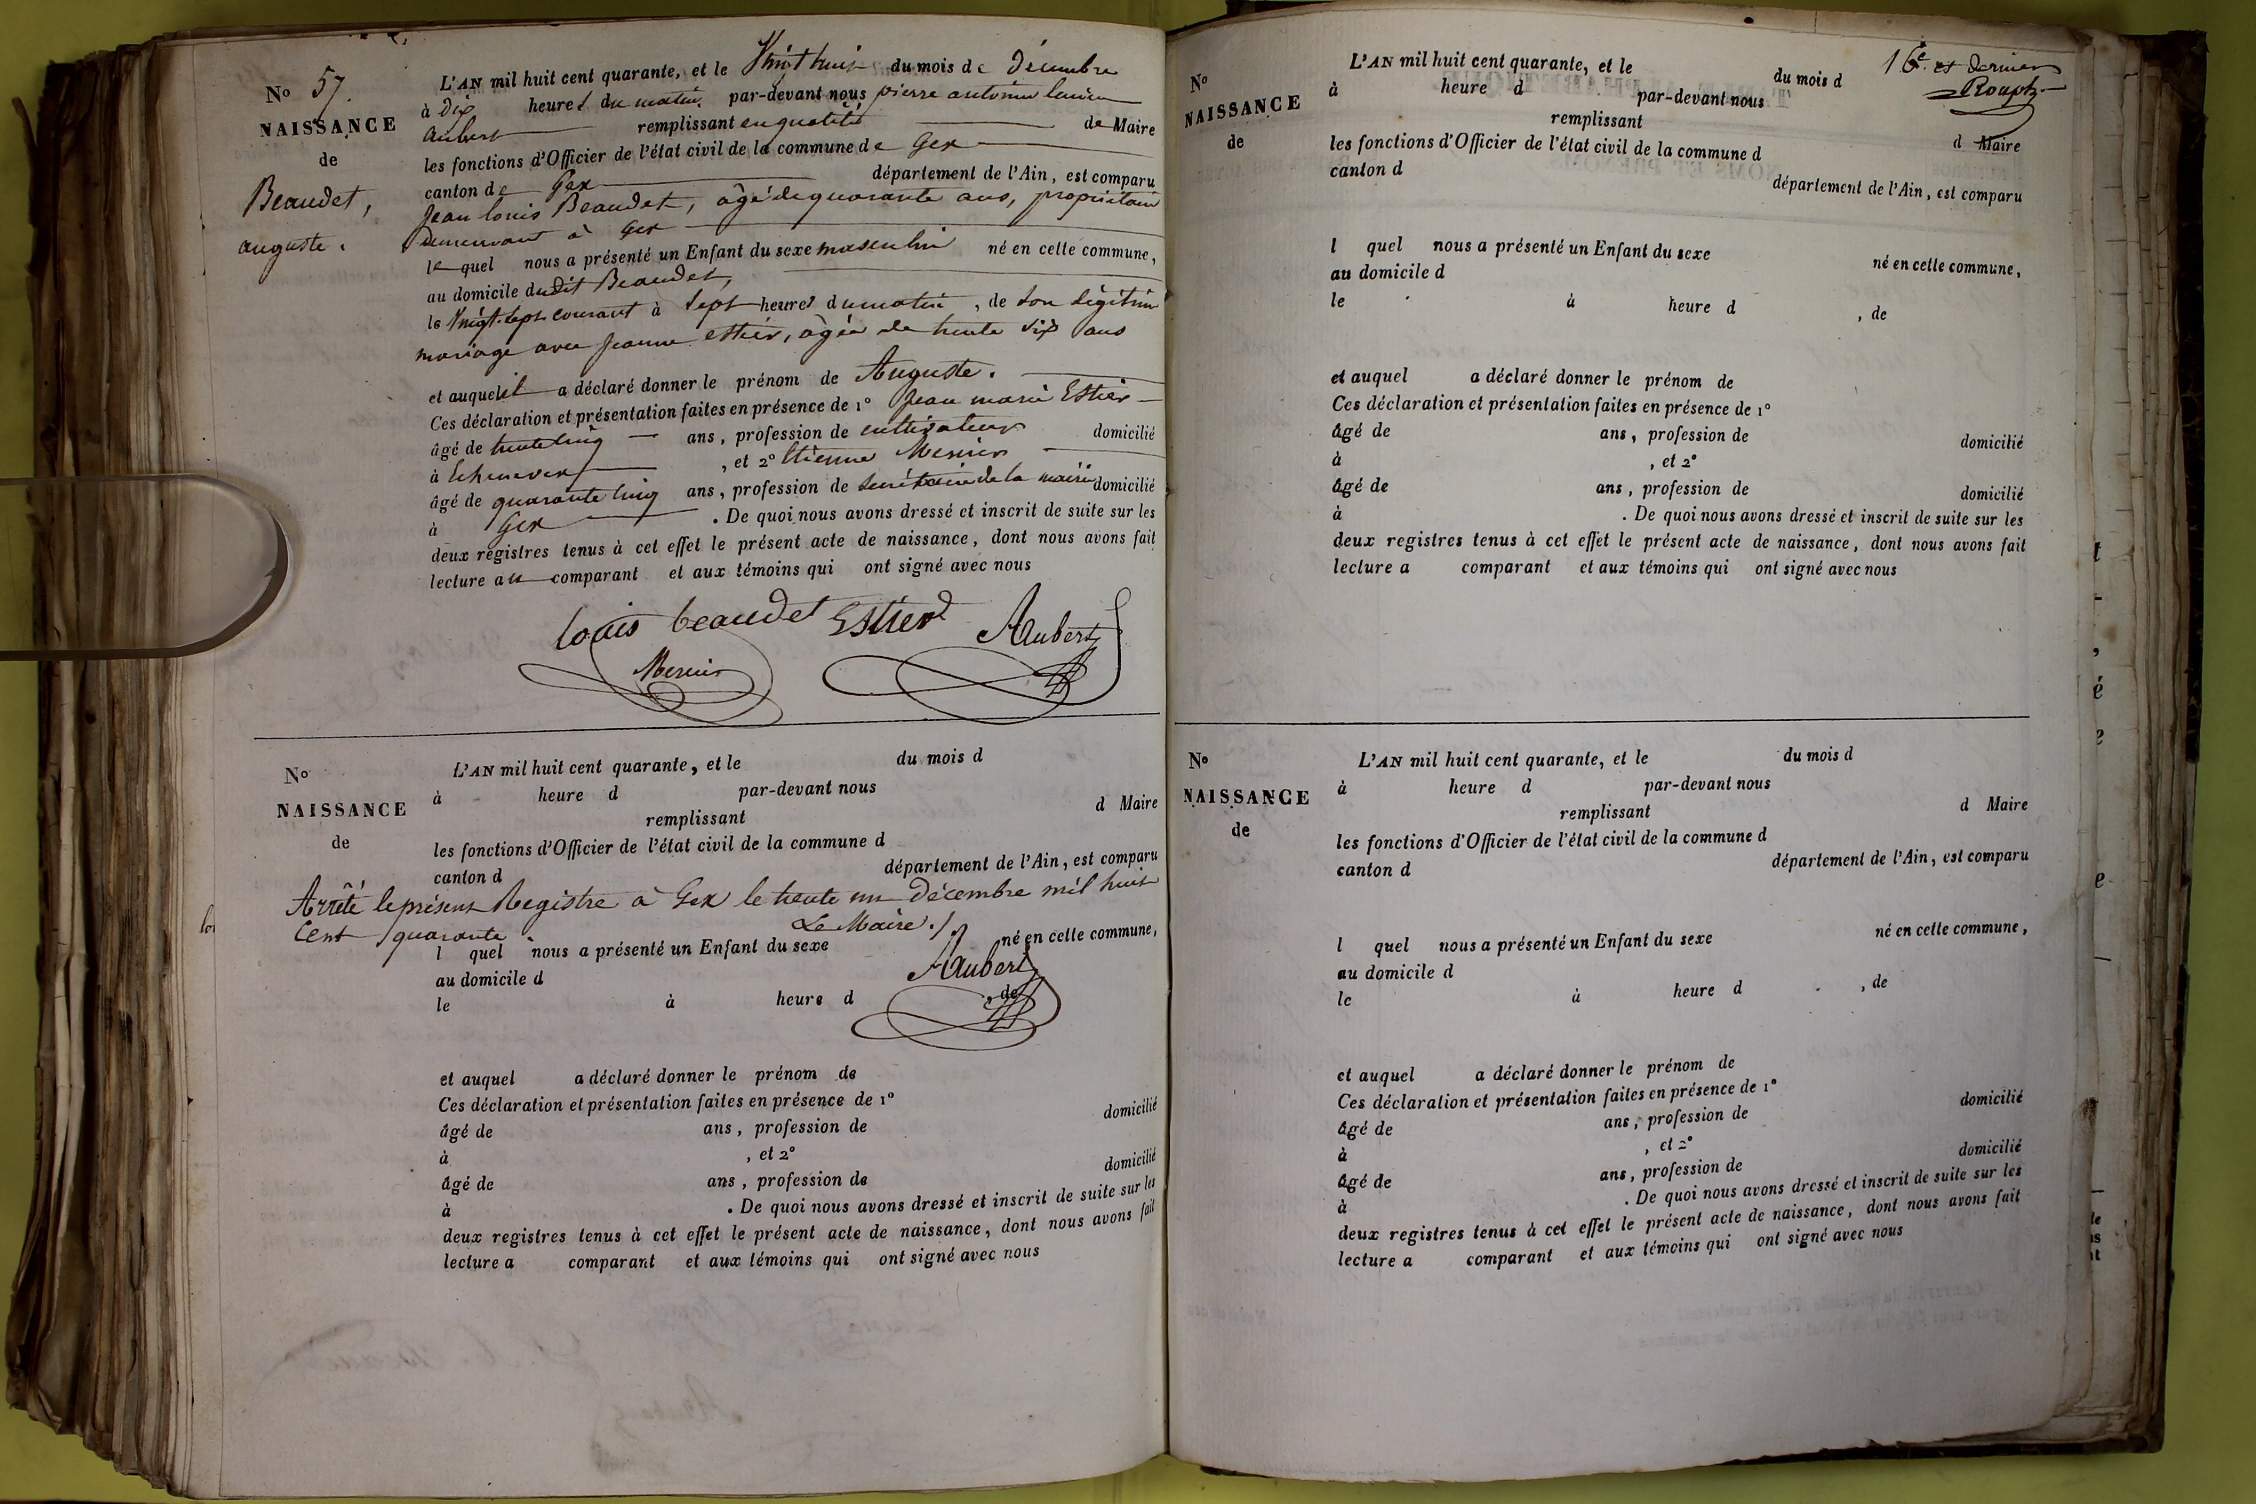 No 57.
NAISSANCE
de
Beaudet,
auguste.
L'AN mil huit cent quarante, et le Vingt huit du mois de décembre
à dix heures du matin par-devant nous pierre antoine
Aubert remplissant en qualité de Maire
les fonctions d'Officier de l'état civil de la commune de Gex
canton de Gex département de l'Ain, est comparu
Jean louis Beaudet, âgé de quarante ans, propriétaire
demeurant à Gex
le quel nous a présenté un Enfant du sexe masculin né en celle commune,
au domicile dudit Beaudet,
le Vingt-sept courant à Sept heures du matin, de son légitime
mariage avec jeanne estier, âgée de trente six ans
et auquel il a déclaré donner le prénom de Auguste.
Ces déclaration et présentation faites en présence de 1° Jean marie Estier
âgé de trente cinq ans, profession de cultivateur domicilié
à Echenevex, et 2° Etienne Mercier
âgé de quarante cinq ans, profession de Secrétaire de la mairie domicilié
à Gex. De quoi nous avons dressé et inscrit de suite sur les
deux registres tenus à cet effet le présent acte de naissance, dont nous avons fait
lecture au comparant et aux témoins qui ont signé avec nous
louis beaudet Estier Aubert
Mercier
No
NAISSANCE
de
L'AN mil huit cent quarante, et le du mois d
à heure d par-devant nous
remplissant d Maire
les fonctions d'Officier de l'état civil de la commune d
canton d département de l'Ain, est comparu
Arrêté le présent Registre à Gex le trente un décembre mil huit
Cent quarante Le Maire ./.
l quel nous a présenté un Enfant du sexe né en celle commune,
Aubert
au domicile d
le à heure d , de
et auquel a déclaré donner le prénom de
Ces déclaration et présentation faites en présence de 1°
âgé de ans, profession de domicilié
à , et 2°
âgé de ans, profession de domicilié
à . De quoi nous avons dressé et inscrit de suite sur les
deux registres tenus à cet effet le présent acte de naissance, dont nous avons fait
lecture a comparant et aux témoins qui ont signé avec nous
16e et dernier
No
NAISSANCE
de
L'AN mil huit cent quarante, et le du mois d
à heure d par-devant nous
remplissant d Maire
les fonctions d'Officier de l'état civil de la commune d
canton d département de l'Ain, est comparu
l quel nous a présenté un Enfant du sexe né en celle commune,
au domicile d
le à heure d , de
et auquel a déclaré donner le prénom de
Ces déclaration et présentation faites en présence de 1°
âgé de ans, profession de domicilié
à , et 2°
âgé de ans, profession de domicilié
à . De quoi nous avons dressé et inscrit de suite sur les
deux registres tenus à cet effet le présent acte de naissance, dont nous avons fait
lecture a comparant et aux témoins qui ont signé avec nous
No
NAISSANCE
de
L'AN mil huit cent quarante, et le du mois d
à heure d par-devant nous
remplissant d Maire
les fonctions d'Officier de l'état civil de la commune d
canton d département de l'Ain, est comparu
l quel nous a présenté un Enfant du sexe né en celle commune,
au domicile d
le à heure d , de
et auquel a déclaré donner le prénom de
Ces déclaration et présentation faites en présence de 1°
âgé de ans, profession de domicilié
à , et 2°
âgé de ans, profession de domicilié
à . De quoi nous avons dressé et inscrit de suite sur les
deux registres tenus à cet effet le présent acte de naissance, dont nous avons fait
lecture a comparant et aux témoins qui ont signé avec nous